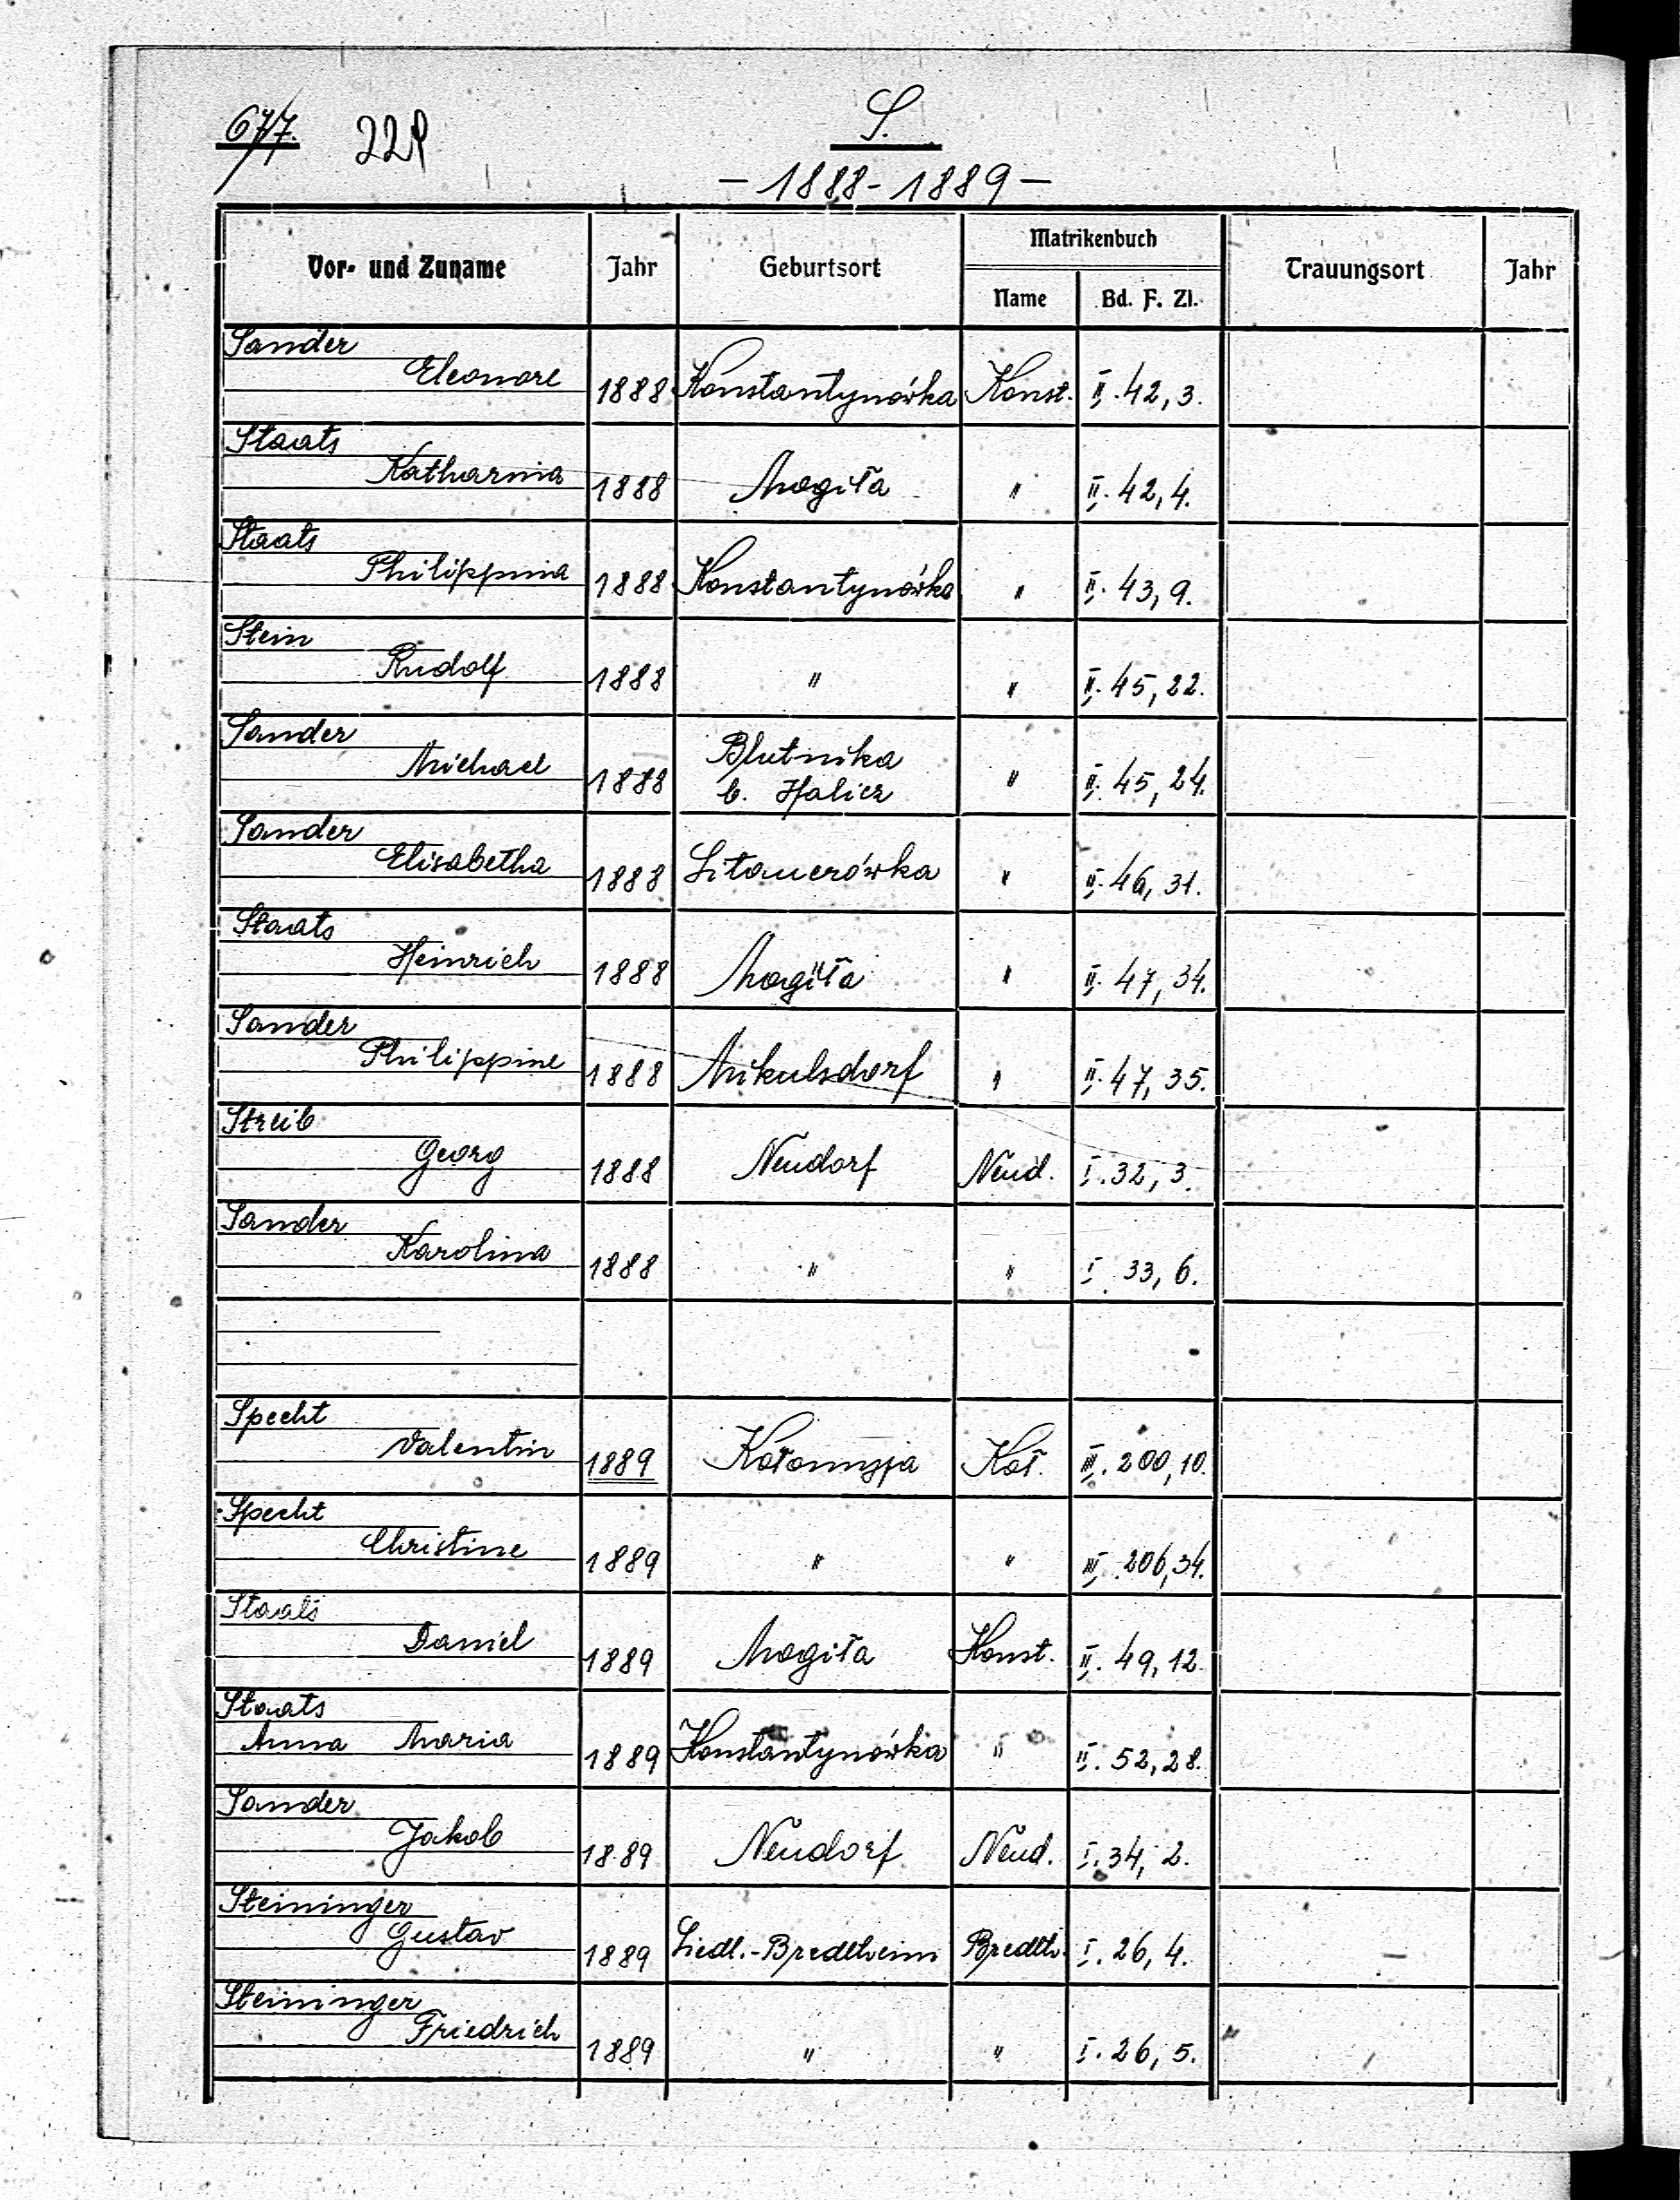 677. 228
S.
- 1888-1889 -
Vor- und Zuname Jahr Geburtsort Matrikenbuch Trauungsort Jahr
Name Bd. F. Zl.
Sander
Eleonore 1888 Konstantynówka Konst. II. 42, 3.
Staats
Katharina 1888 Mogiła " II. 42, 4.
Staats
Philippina 1888 Konstantynówka " II. 43, 9.
Stein
Rudolf 1888 " " II. 45, 22.
Sander
Michael 1888 Blutnika
b. Halicz " II. 45, 24.
Sander
Elisabetha 1888 Sitauerówka " II. 46, 31.
Staats
Heinrich 1888 Mogiła " II. 47, 34.
Sander
Philippine 1888 Mikulsdorf " II. 47, 35.
Streib
Georg 1888 Neudorf Neud. I. 32, 3.
Sander
Karolina 1888 " " I. 33, 6.
Specht
Valentin 1889 Kołomyja Koł. III. 200, 10.
Specht
Christine 1889 " " III. 206, 34.
Staats
Daniel 1889 Mogiła Konst. II. 49, 12.
Staats
Anna Maria 1889 Konstantynówka " II. 52, 28.
Sander
Jakob 1889 Neudorf Neud. I. 34, 2.
Steininger
Gustav 1889 Siedl.-Bredtheim Bredth. I. 26, 4.
Steininger
Friedrich 1889 " " I. 26, 5.